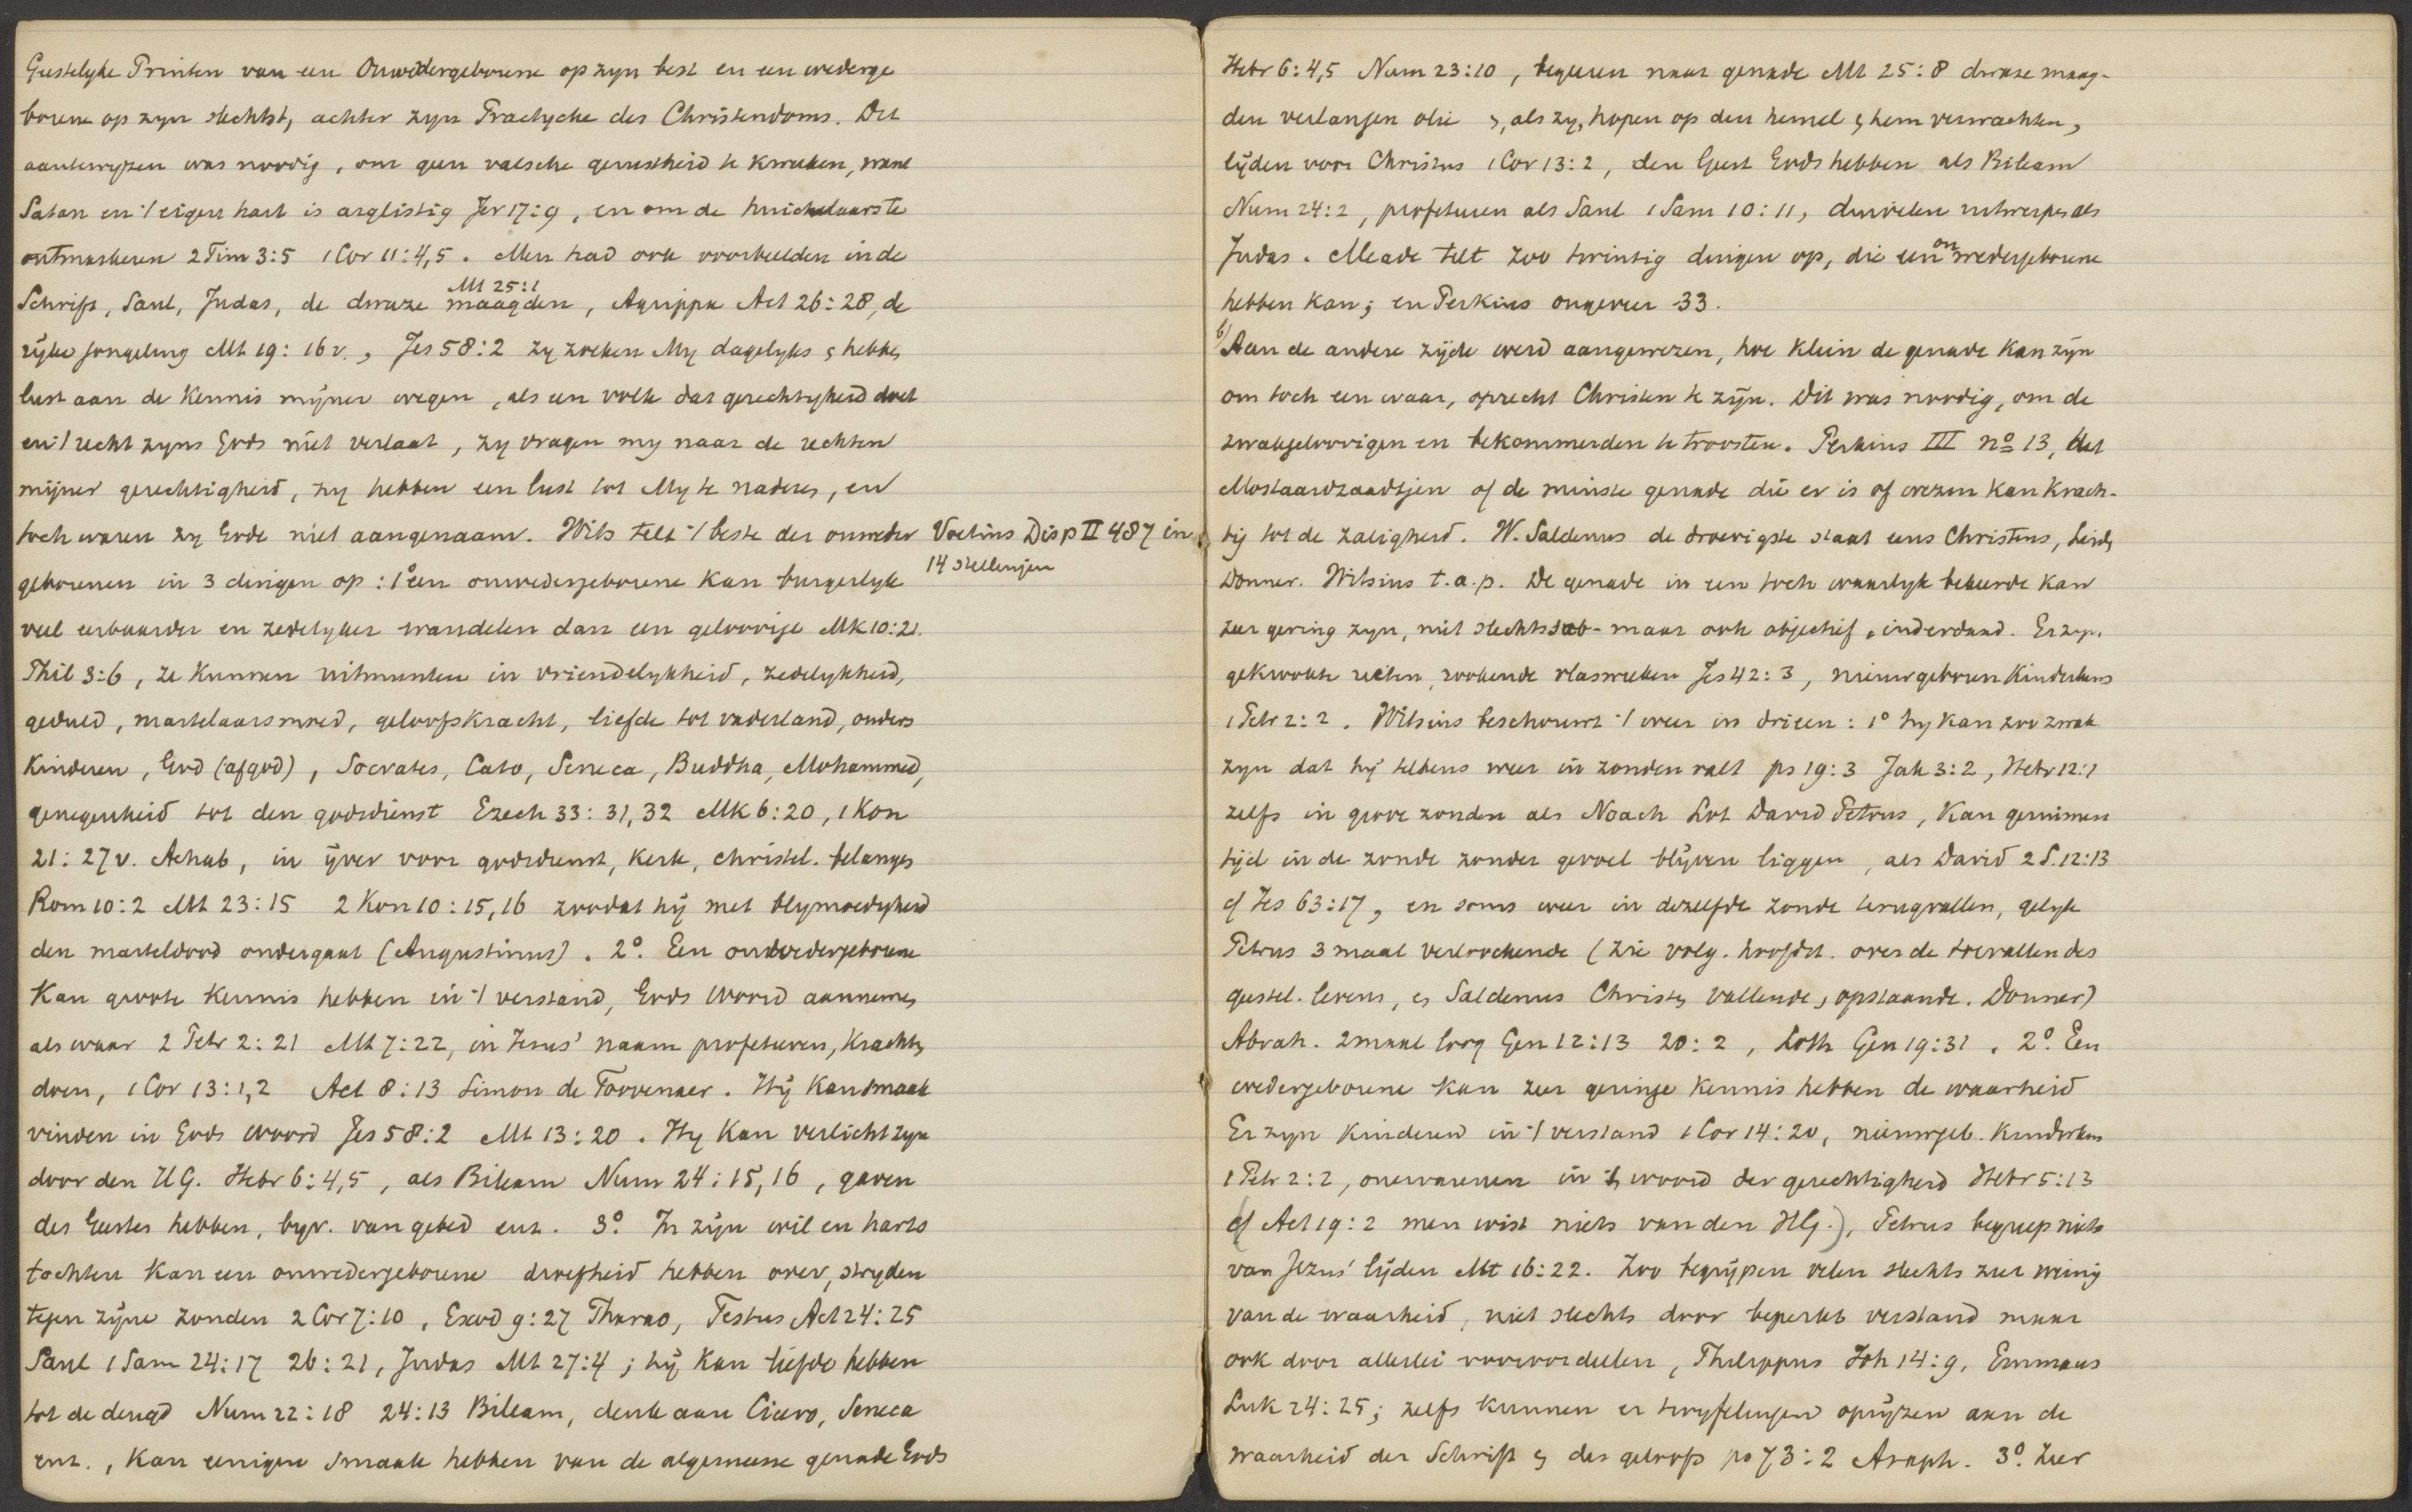 Geestelyke Printen van een Onwedergeborene op zyn best en een wederge
borene op zyn slechtst, achter zyn Practycke des Christendoms. Dit
aantewyzen was noodig, om geen valsche gerustheid te kweeken, want
Satan en 't eigen hart is arglistig Jer 17:9, en om de huichelaars te
ontmaskeren 2 Tim 3:5 1 Cor 11:4,5. Men had ook voorbeelden in de
Mt 25:1
Schrift, Saul, Judas, de dwaze maagden, Agrippa Act 26:28, de
rijke jongeling Mt 19:16 v., Jes 58:2 zy zoeken My dagelyks en hebben
lust aan de kennis mijner wegen, als een volk dat gerechtigheid doet
en 't recht zyns Gods niet verlaat, zy vragen my naar de rechten
mijner gerechtigheid, zy hebben een lust tot My te naderen, en
toch waren zy Gode niet aangenaam. Wits telt 't beste der onweder
Voetius Disp II 487 in
14 stellingen
geborenen in 3 dingen op: 1° een onwedergeborene kan burgerlyk
veel eerbaarder en zedelyker wandelen dan een geloovige Mk 10:21.
Phil 3:6, ze kunnen uitmunten in vriendelykheid, zedelykheid,
geduld, martelaarsmoed, geloofskracht, liefde tot vaderland, ouders
kinderen, God (afgod), Socrates, Cato, Seneca, Buddha, Mohammed,
genegenheid tot den godsdienst Ezech 33:31,32 Mk 6:20, 1 Kon
21:27 v. Achab, in ijver voor godsdienst, kerk, christel. belangen
Rom 10:2 Mt 23:15 2 Kon 10:15,16 zoodat hij met blymoedigheid
den marteldood ondergaat (Augustinus). 2° Een onwedergeborene
kan groote kennis hebben in 't verstand, Gods Woord aannemen
als waar 2 Petr 2:21 Mt 7:22, in Jezus' naam profeteeren, krachten
doen, 1 Cor 13:1,2 Act 8:13 Simon de Toovenaer. Hij kan smaak
vinden in Gods woord Jes 58:2 Mt 13:20. Hy kan verlicht zyn
door den H G. Hebr 6:4,5, als Bileam Num 24:15,16, gaven
des Geestes hebben, byv. van gebed enz. 3° In zijn wil en harts
tochten kan een onwedergeborene droefheid hebben over, stryden
tegen zijne zonden 2 Cor 7:10, Exod 9:27 Pharao, Festus Act 24:25
Saul 1 Sam 24:17 26:21, Judas Mt 27:4; hij kan liefde hebben
tot de deugd Num 22:18 24:13 Bileam, denk aan Cicero, Seneca
enz., kan eenigen smaak hebben van de algemeene genade Gods
Hebr 6:4,5 Num 23:10, begeeren naar genade Mt 25:8 dwaze maag-
den verlangen olie en, als zy, hopen op den hemel en hem verwachten,
lijden voor Christus 1 Cor 13:2, den Geest Gods hebben als Bileam
Num 24:2, profeteeren als Saul 1 Sam 10:11, duivelen uitwerpen als
Judas. Meade telt zoo twintig dingen op, die een onwedergeborene
hebben kan; en Perkins ongeveer 33.
b) Aan de andere zijde werd aangewezen, hoe klein de genade kan zijn
om toch een waar, oprecht Christen te zijn. Dit was noodig, om de
zwakgeloovigen en bekommerden te troosten. Perkins III no 13, het
Mostaardzaadtjen of de minste genade die er is of wezen kan krach-
tig tot de zaligheid. W. Saldenus de droevigste staat eens Christens, Leiden
Donner. Witsius t.a.p. De genade in een toch waarlyk bekeerde kan
zeer gering zyn, niet slechts sub- maar ook objectief, inderdaad. Er zyn
gekrookte rieten, rookende vlaswieken Jes 42:3, nieuwgeboren kinderkens
1 Petr 2:2. Witsius beschouwt 't weer in drieen: 1° hy kan zoo zwak
zyn dat hij telkens weer in zonden valt ps 19:3 Jak 3:2, Hebr 12:1
zelfs in grove zonden als Noach Lot David Petrus, kan geruimen
tijd in de zonde zonder gevoel blijven liggen, als David 2 S. 12:13
cf Jes 63:17, en soms weer in dezelfde zonde terugvallen, gelyk
Petrus 3 maal verloochende (zie volg. hoofdst. over de toevallen des
geestel. levens, en Saldenus Christen vallende en opstaande. Donner)
Abrah. 2 maal loog Gen 12:13 20:2, Loth Gen 19:31. 2° Een
wedergeborene kan zeer geringe kennis hebben de waarheid
Er zyn kinderen in 't verstand 1 Cor 14:20, nieuwgeb. kinderkens
1 Petr 2:2, onervarenen in 't woord der gerechtigheid Hebr 5:13
(cf Act 19:2 men wist niets van den HG.), Petrus begreep niets
van Jezus' lijden Mt 16:22. Zoo begrijpen velen slechts zeer weinig
van de waarheid, niet slechts door beperkt verstand maar
ook door allerlei vooroordeelen, Philippus Joh 14:9, Emmaus
Luk 24:25; zelfs kunnen er twyfelingen oprijzen aan de
waarheid der Schrift en des geloofs ps 73:2 Asaph. 3° Zeer